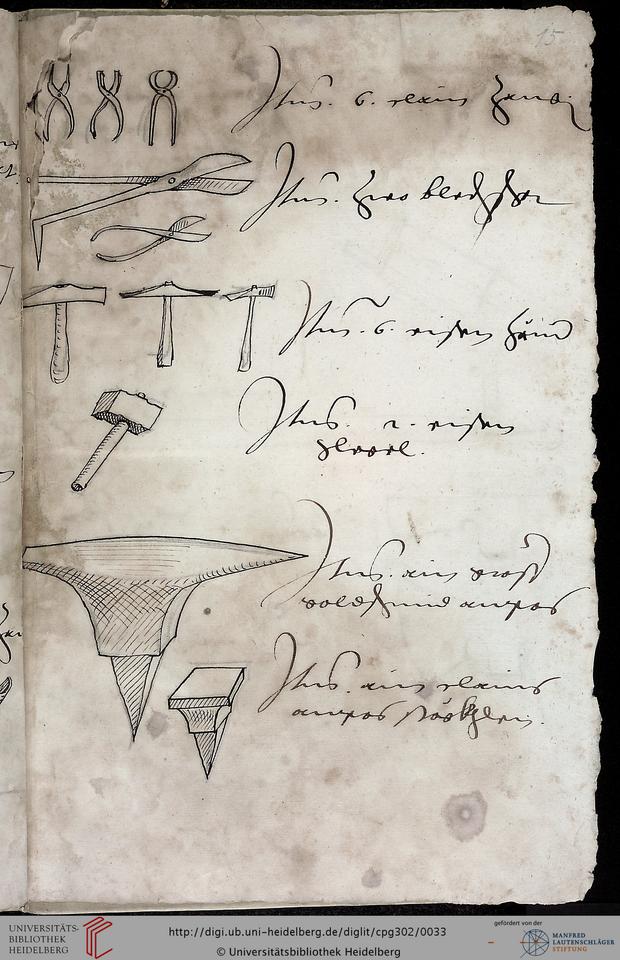 15
Itm. 6. clain Zang
Itm. Zwo blechscher
Itm. 6. eisen Häm
Itm. 2. eisen
Schlegel.
Itm. ain groß
goldschmid ampos
Itm. ain clains
ampos stöckhlein.
UNIVERSITÄTS-
BIBLIOTHEK
HEIDELBERG
http://digi.ub.uni-heidelberg.de/diglit/cpg302/0033
© Universitätsbibliothek Heidelberg
gefördert von der
MANFRED
LAUTENSCHLÄGER
STIFTUNG